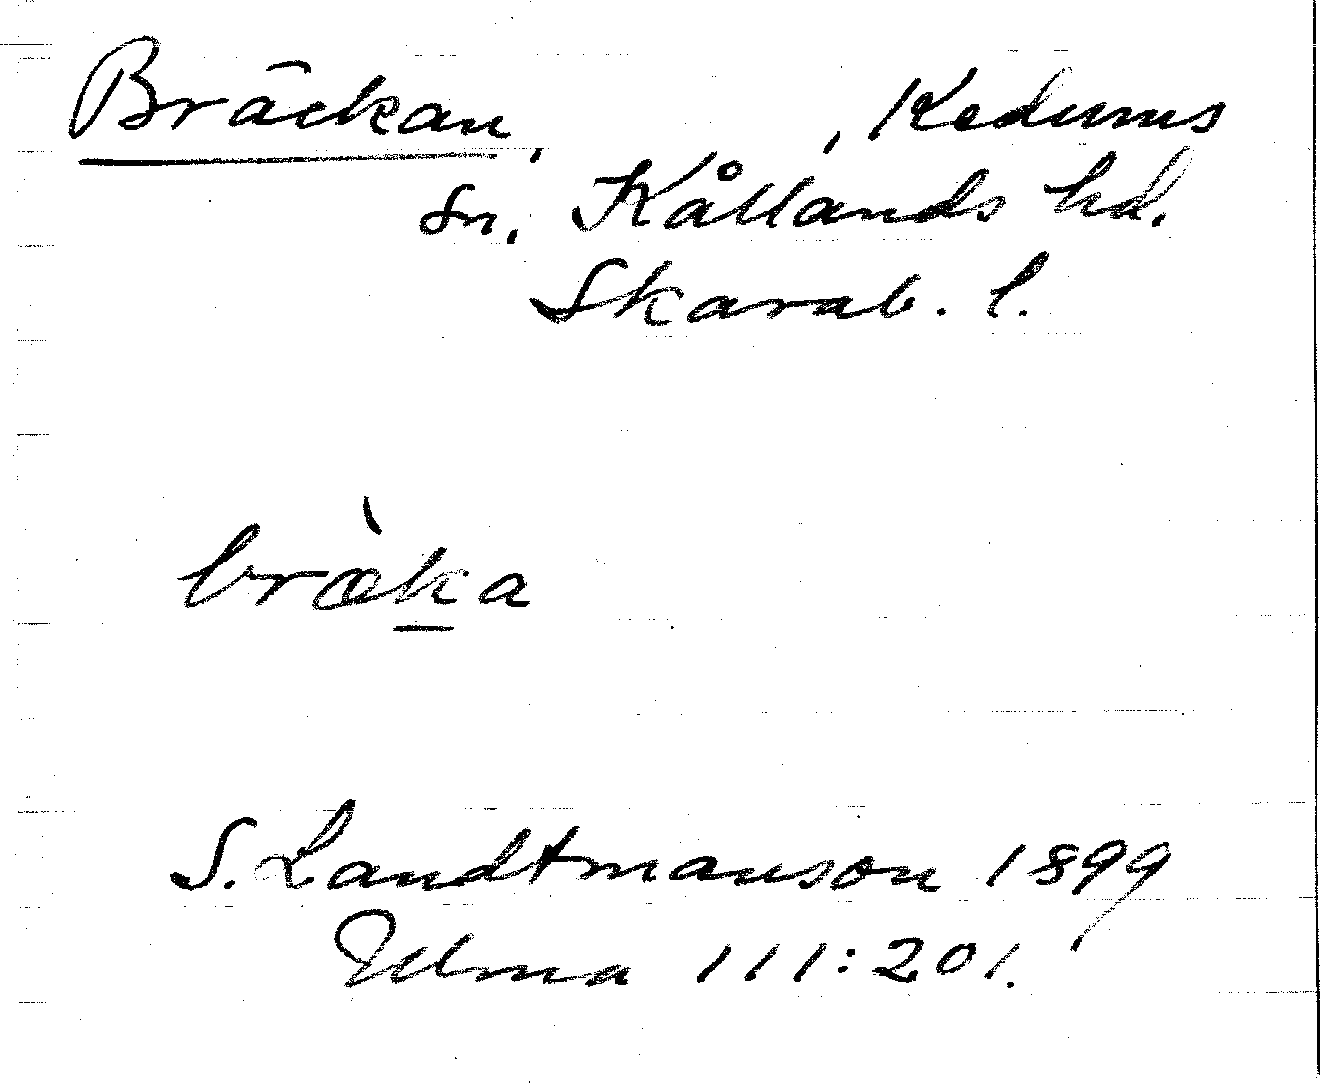 Bräckan, , Kedums
sn, Kållands hd.
Skarab. l.
bræ̀ka
S. Landtmanson 1899
Ulma 111:201.